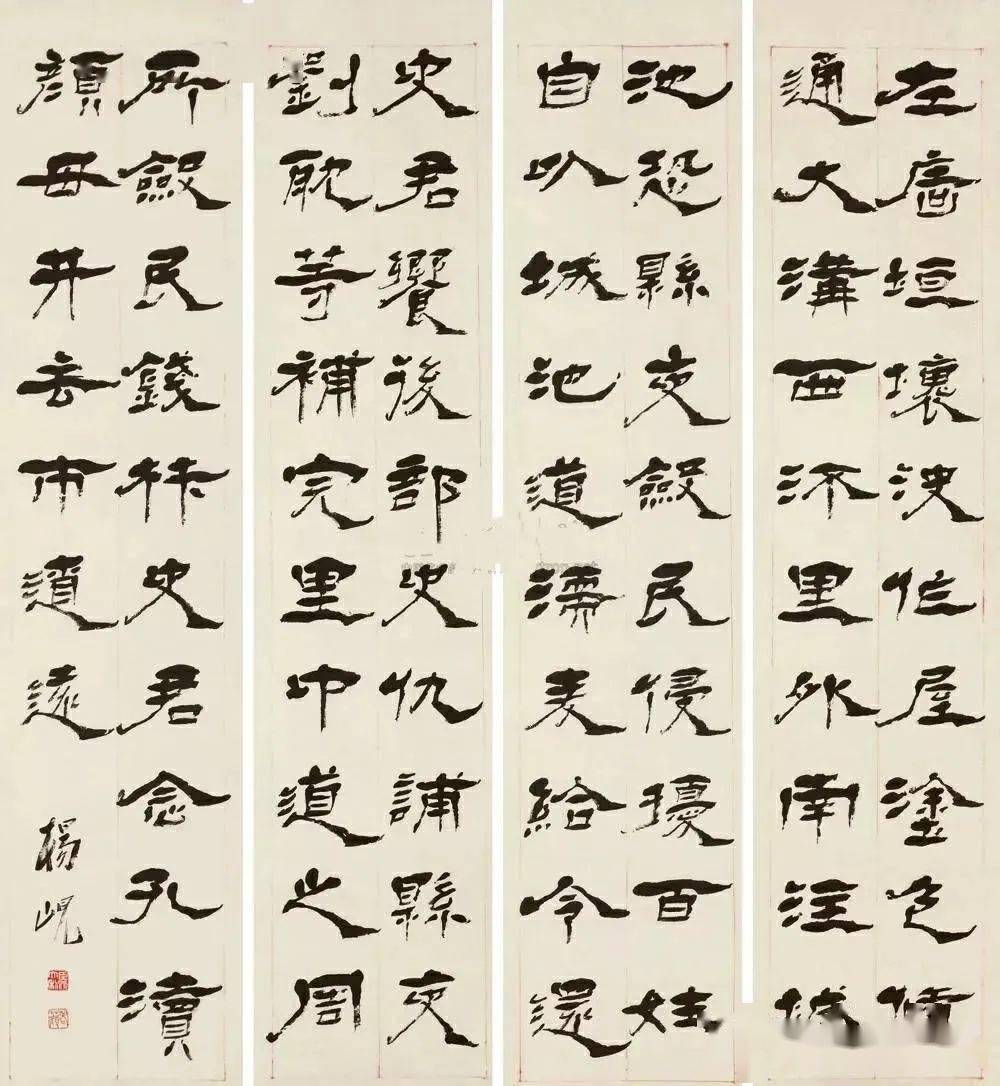 左廧垣壞決作屋塗色脩
通大溝西流里外南注城
池恐縣吏斂民侵擾百姓
自以城池道濡麥給令還
史君饗後部史仇誧縣吏
劉耽等補完里中道之周
所斂民錢材史君念孔瀆
顏母井去市遼遠
楊峴